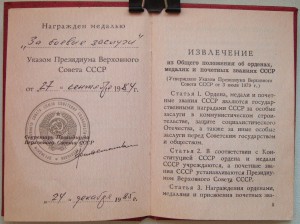 Награжден медалью
"За боевые заслуги"
Указом Президиума Верховного
Совета СССР
от "27" сентября 1984г.
Секретарь Президиума
Верховного Совета СССР
"24" декабря 1985г.
ИЗВЛЕЧЕНИЕ
из Общего положения об орденах,
медалях и почетных званиях СССР
(Утверждено Указом Президиума Верховного
Совета СССР от 3 июля 1979 г.)
Статья 1. Ордена, медали и почет-
ные звания СССР являются государ-
ственными наградами СССР за особые
заслуги в коммунистическом строи-
тельстве, защите социалистического
Отечества, а также за иные особые
заслуги перед Советским государством
и обществом.
Статья 2. В соответствии с Кон-
ституцией СССР ордена и медали
СССР учреждаются, а почетные зва-
ния СССР устанавливаются Президиу-
мом Верховного Совета СССР.
Статья 3. Награждение орденами,
медалями и присвоение почетных зва-